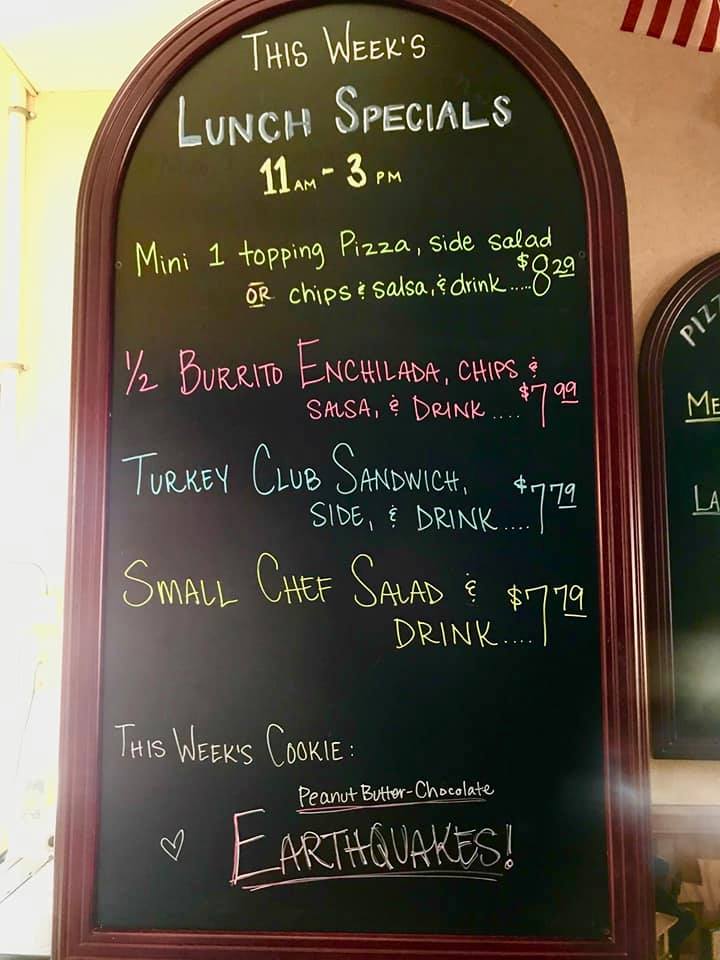 THIS WEEK'S
LUNCH SPECIALS
11 AM - 3 PM
Mini 1 topping Pizza, side salad
OR chips & salsa, & drink.....$8.29
1/2 BURRITO ENCHILADA, CHIPS &
SALSA, & DRINK....$7.99
TURKEY CLUB SANDWICH,
SIDE, & DRINK....$7.79
SMALL CHEF SALAD &
DRINK....$7.79
THIS WEEK'S COOKIE:
Peanut Butter-Chocolate
EARTHQUAKES!